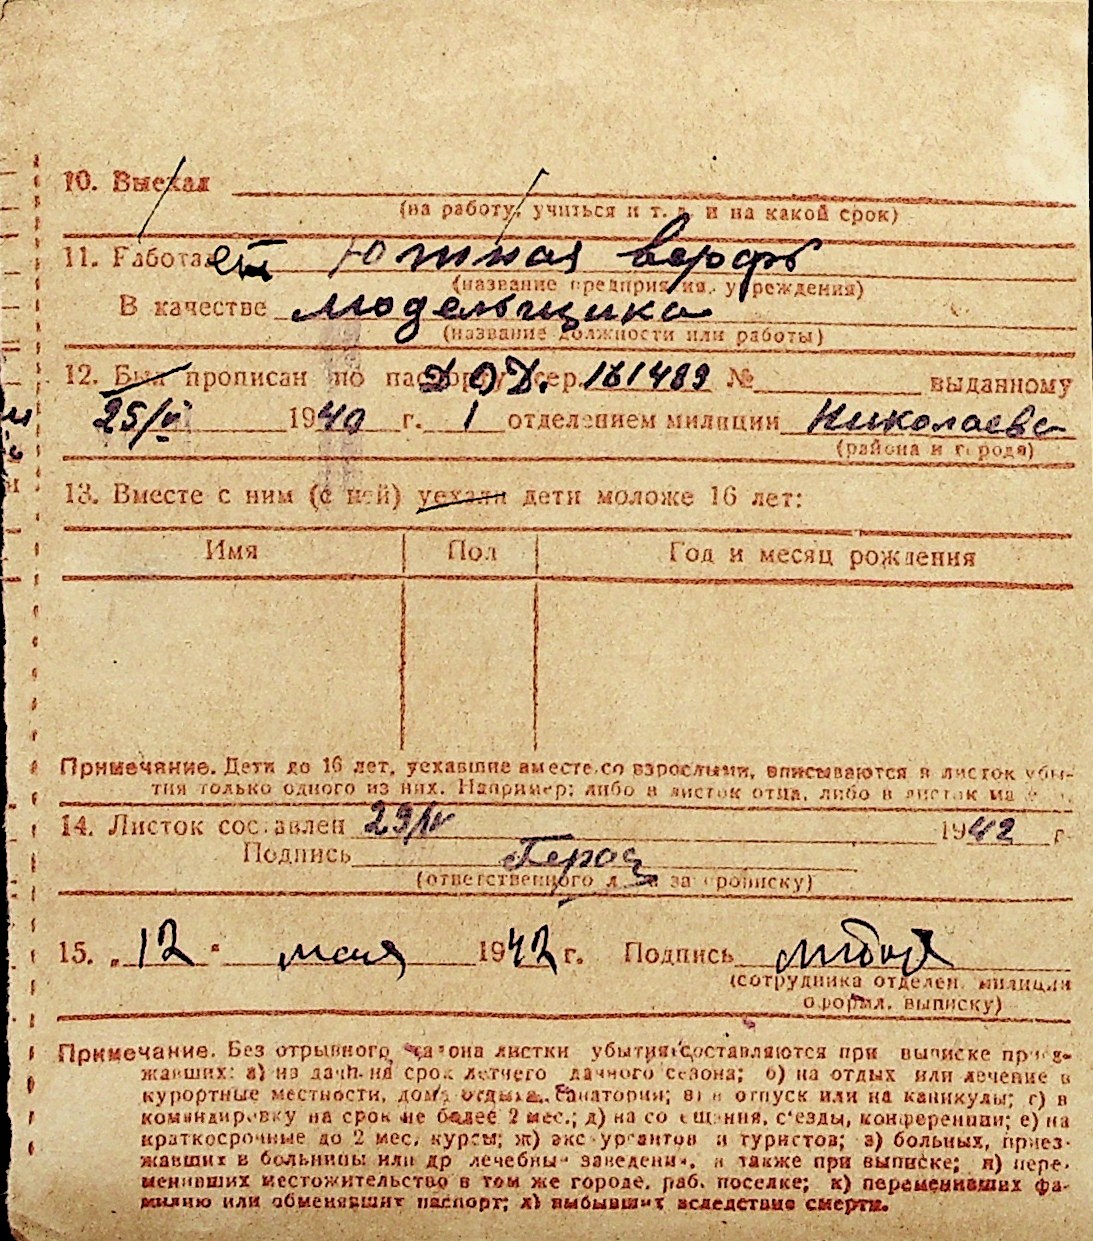 10. Выехал
(на работу, учиться и т. д. и на какой срок)
11. Работает Южная верфь
(название предприятия, учреждения)
В качестве модельщика
(название должности или работы)
12. Был прописан по паспорту сер. 161489 № выданному
25/ 1940 г. 1 отделением милиции Николаева
(района и города)
13. Вместе с ним (с ней) уехали дети моложе 16 лет:
Имя Пол Год и месяц рождения
Примечание. Дети до 16 лет, уехавшие вместе со взрослыми, вписываются в листок убы-
тия только одного из них. Например: либо в листок отца, либо в листок ма
14. Листок составлен 29/IV 1942 г.
Подпись
(ответственного лица за прописку)
15. „12" мая 1942 г. Подпись
(сотрудника отделен. милиции
оформл. выписку)
Примечание. Без отрывного талона листки убытия составляются при выписке приез-
жавших: а) на дачи на срок летнего дачного сезона; б) на отдых или лечение в
курортные местности, дома отдыха, санатории; в) в отпуск или на каникулы; г) в
командировку на срок не более 2 мес.; д) на совещания, с'езды, конференции; е) на
краткосрочные до 2 мес. курсы; ж) экскурсантов и туристов; з) больных, приез-
жавших в больницы или др лечебные заведения, а также при выписке; и) пере-
менивших местожительство в том же городе, раб. поселке; к) переменивших фа-
милию или обменявших паспорт; л) выбывших вследствие смерти.